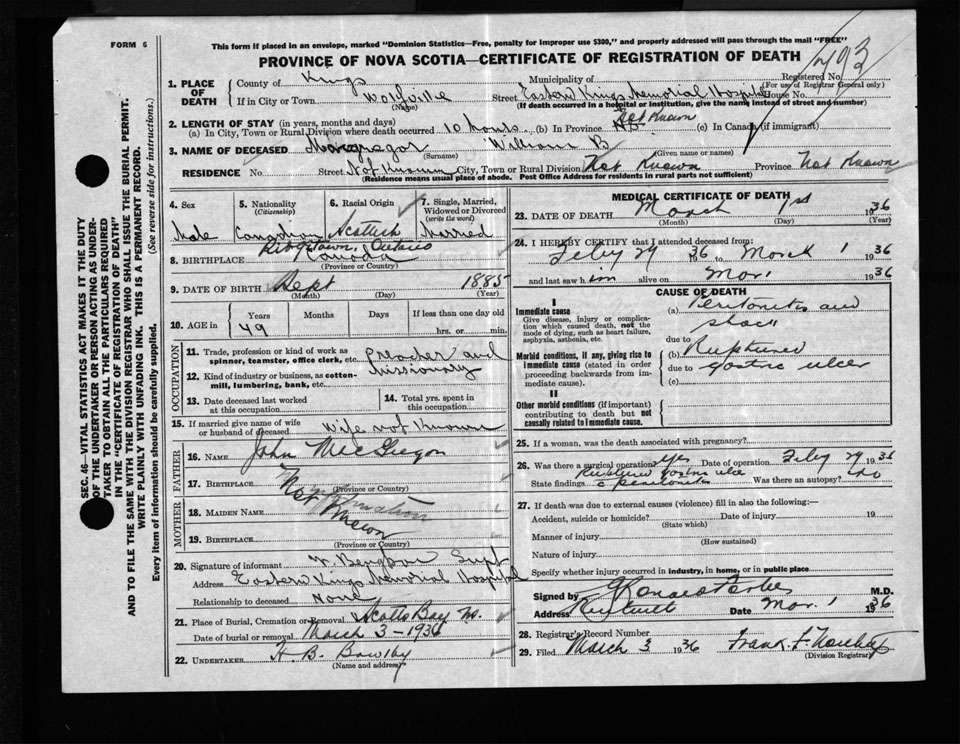 FORM 6
This form if placed in an envelope, marked "Dominion Statistics—Free, penalty for improper use $300," and properly addressed will pass through the mail "FREE"
PROVINCE OF NOVA SCOTIA—CERTIFICATE OF REGISTRATION OF DEATH
Registered No.
(For use of Registrar General only)
493
1. PLACE OF DEATH County of Kings Municipality of
If in City or Town Wolfville Street Eastern Kings Memorial Hospital House No.
(Name) (If death occurred in a hospital or institution, give the name instead of street and number)
2. LENGTH OF STAY (in years, months and days)
(a) In City, Town or Rural Division where death occurred 10 hours (b) In Province Not Known (c) In Canada (if immigrant)
3. NAME OF DECEASED Macgregor William B
(Surname) (Given name or names)
RESIDENCE No. Street Not Known City, Town or Rural Division Not Known Province Not Known
(Residence means usual place of abode. Post Office Address for residents in rural parts not sufficient)
4. Sex Male
5. Nationality (Citizenship) Canadian
6. Racial Origin Scottish
7. Single, Married, Widowed or Divorced (write the word) Married
8. BIRTHPLACE Ontario Canada
(Province or Country)
9. DATE OF BIRTH Sept 1885
(Month) (Day) (Year)
10. AGE in Years Months Days If less than one day old
49 hrs. or min.
OCCUPATION
11. Trade, profession or kind of work as spinner, teamster, office clerk, etc. Preacher and Missionary
12. Kind of industry or business, as cotton-mill, lumbering, bank, etc.
13. Date deceased last worked at this occupation
14. Total yrs. spent in this occupation
15. If married give name of wife or husband of deceased Wife not Known
FATHER
16. NAME John McGregor
17. BIRTHPLACE
(Province or Country)
MOTHER
18. MAIDEN NAME
19. BIRTHPLACE
(Province or Country)
No information Known
20. Signature of informant Supt
Address Eastern Kings Memorial Hospital
Relationship to deceased None
21. Place of Burial, Cremation or Removal Scotts Bay NS.
Date of burial or removal March 3-1936
22. UNDERTAKER H. B. Bowlby
(Name and address)
MEDICAL CERTIFICATE OF DEATH
23. DATE OF DEATH March 1st 1936
(Month) (Day) (Year)
24. I HEREBY CERTIFY that I attended deceased from:
Feby 29 1936 to March 1 1936
and last saw him alive on Mar 1 1936
CAUSE OF DEATH
I
Immediate cause (a) Peritonitis and shock
Give disease, injury or complication which caused death, not the mode of dying, such as heart failure, asphyxia, asthenia, etc.
due to
Morbid conditions, if any, giving rise to immediate cause (stated in order proceeding backwards from immediate cause).
(b) Ruptured
due to gastric ulcer
(c)
II
Other morbid conditions (if important) contributing to death but not causally related to immediate cause.
25. If a woman, was the death associated with pregnancy?
26. Was there a surgical operation? yes Date of operation Feby 29 1936
State findings Ruptured gastric ulcer c peritonitis Was there an autopsy? no
27. If death was due to external causes (violence) fill in also the following:—
Accident, suicide or homicide? Date of injury 19
(State which)
Manner of injury
(How sustained)
Nature of injury
Specify whether injury occurred in industry, in home, or in public place
Signed by M.D.
Address Date Mar. 1 1936
28. Registrar's Record Number
29. Filed March 3 1936 Frank F.
(Division Registrar)
SEC. 46—VITAL STATISTICS ACT MAKES IT THE DUTY
OF THE UNDERTAKER OR PERSON ACTING AS UNDER-
TAKER TO OBTAIN ALL THE PARTICULARS REQUIRED
IN THE "CERTIFICATE OF REGISTRATION OF DEATH"
AND TO FILE THE SAME WITH THE DIVISION REGISTRAR WHO SHALL ISSUE THE BURIAL PERMIT.
WRITE PLAINLY WITH UNFADING INK. THIS IS A PERMANENT RECORD.
Every item of information should be carefully supplied. (See reverse side for instructions.)